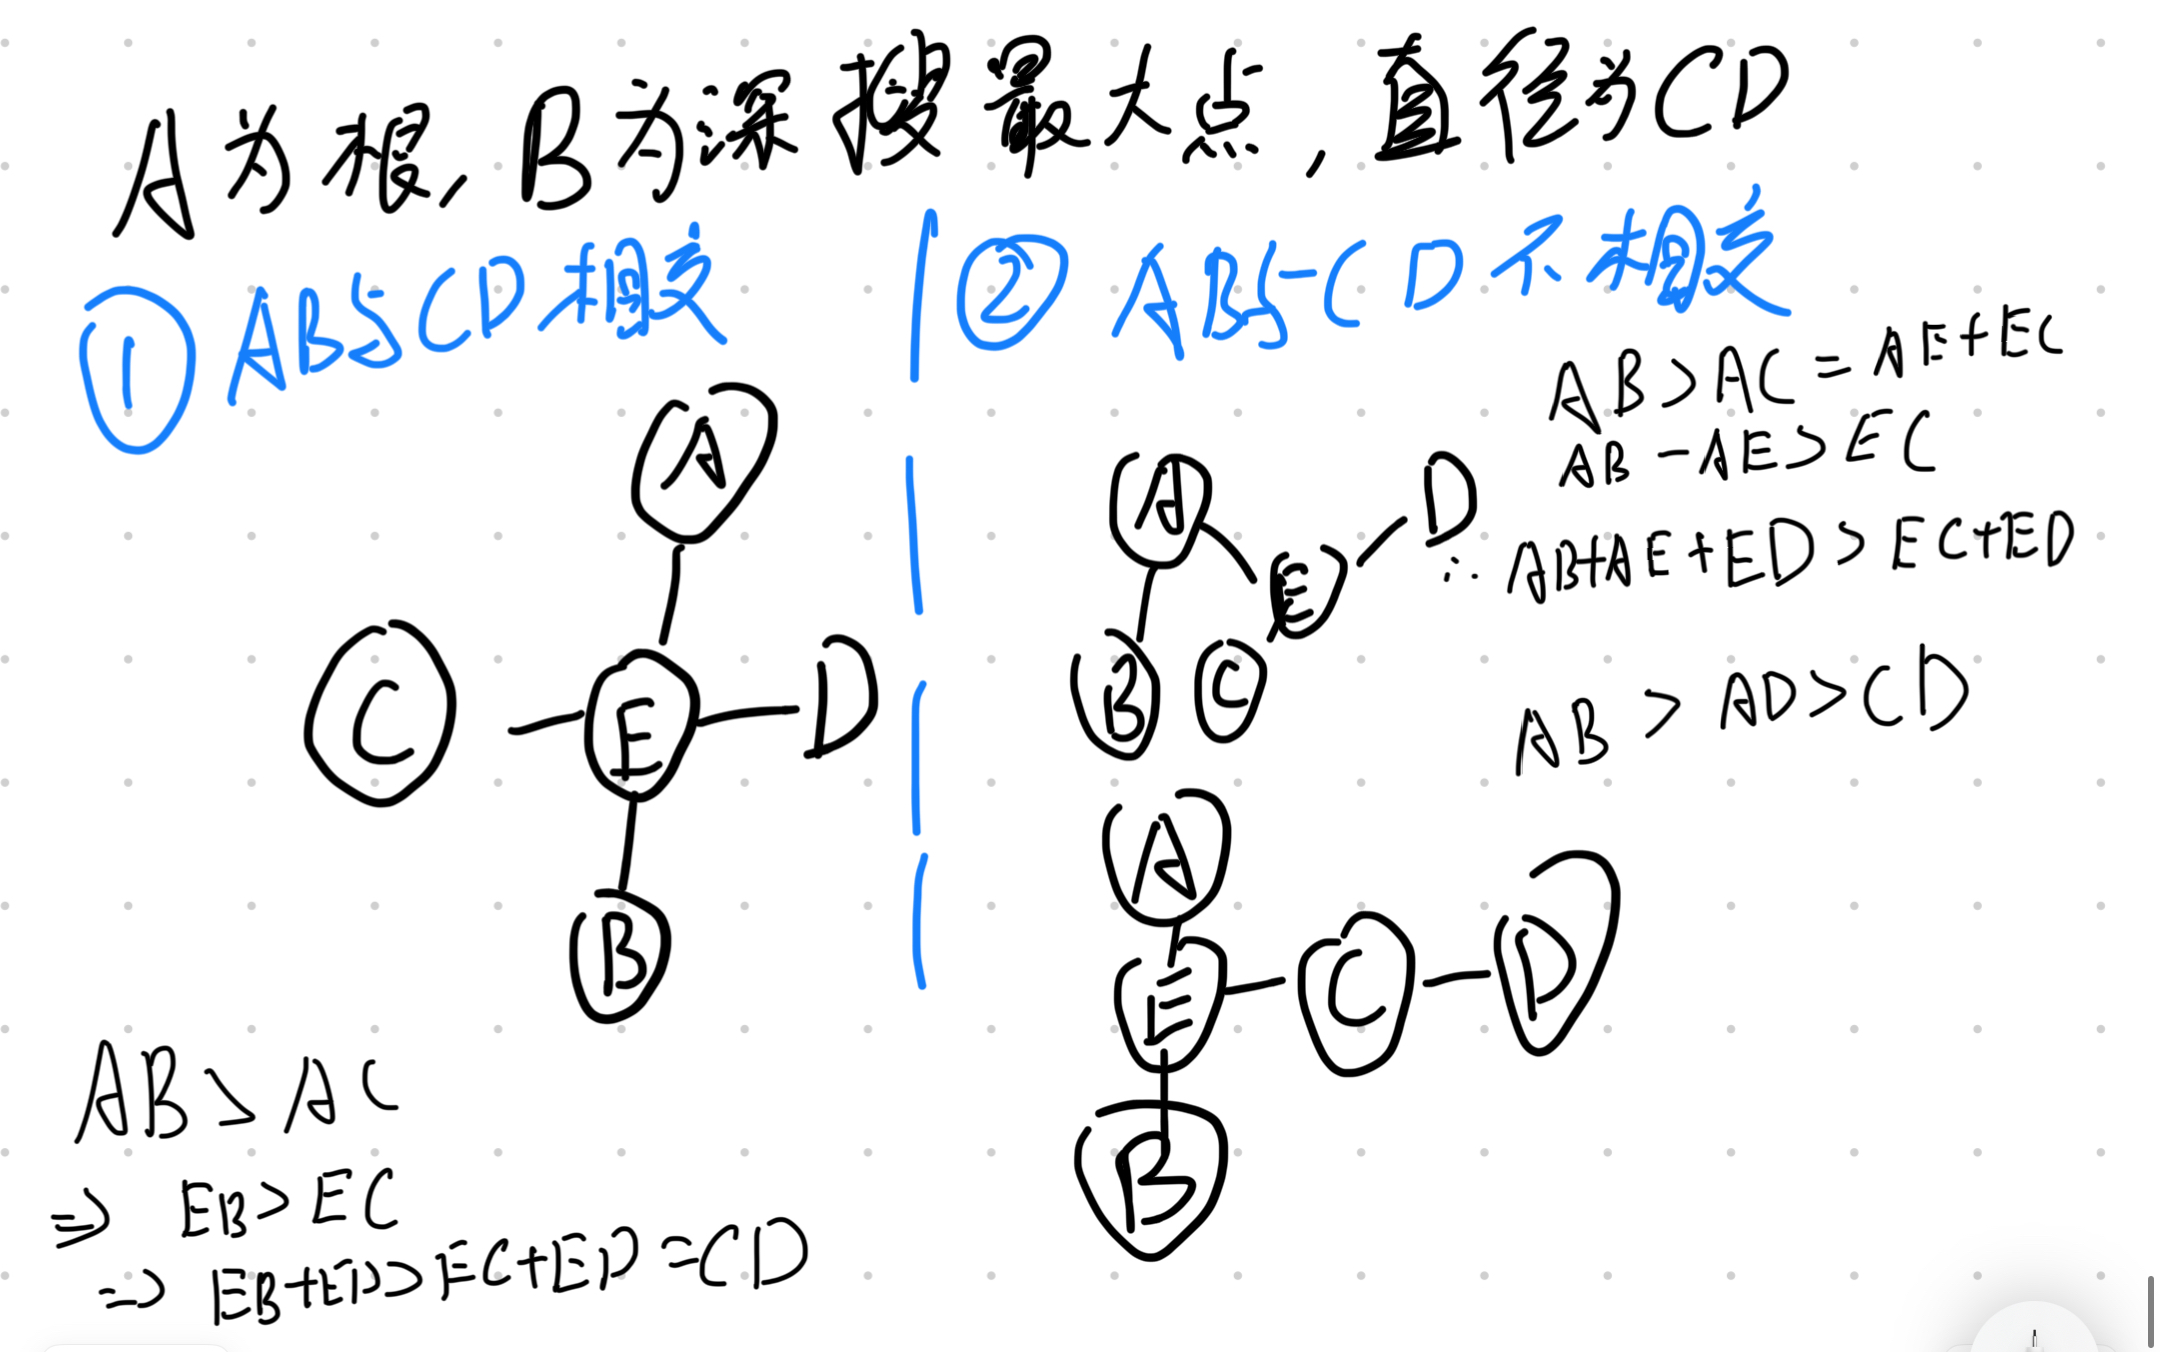 A为根,B为深搜最大点,直径为CD
① AB与CD相交
A
C
E
D
B
AB>AC
=> EB>EC
=> EB+ED>EC+ED=CD
② AB与CD不相交
AB>AC=AE+EC
AB-AE>EC
∴AB+AE+ED>EC+ED
AB>AD>CD
A
D
E
B
C
A
E
C
D
B